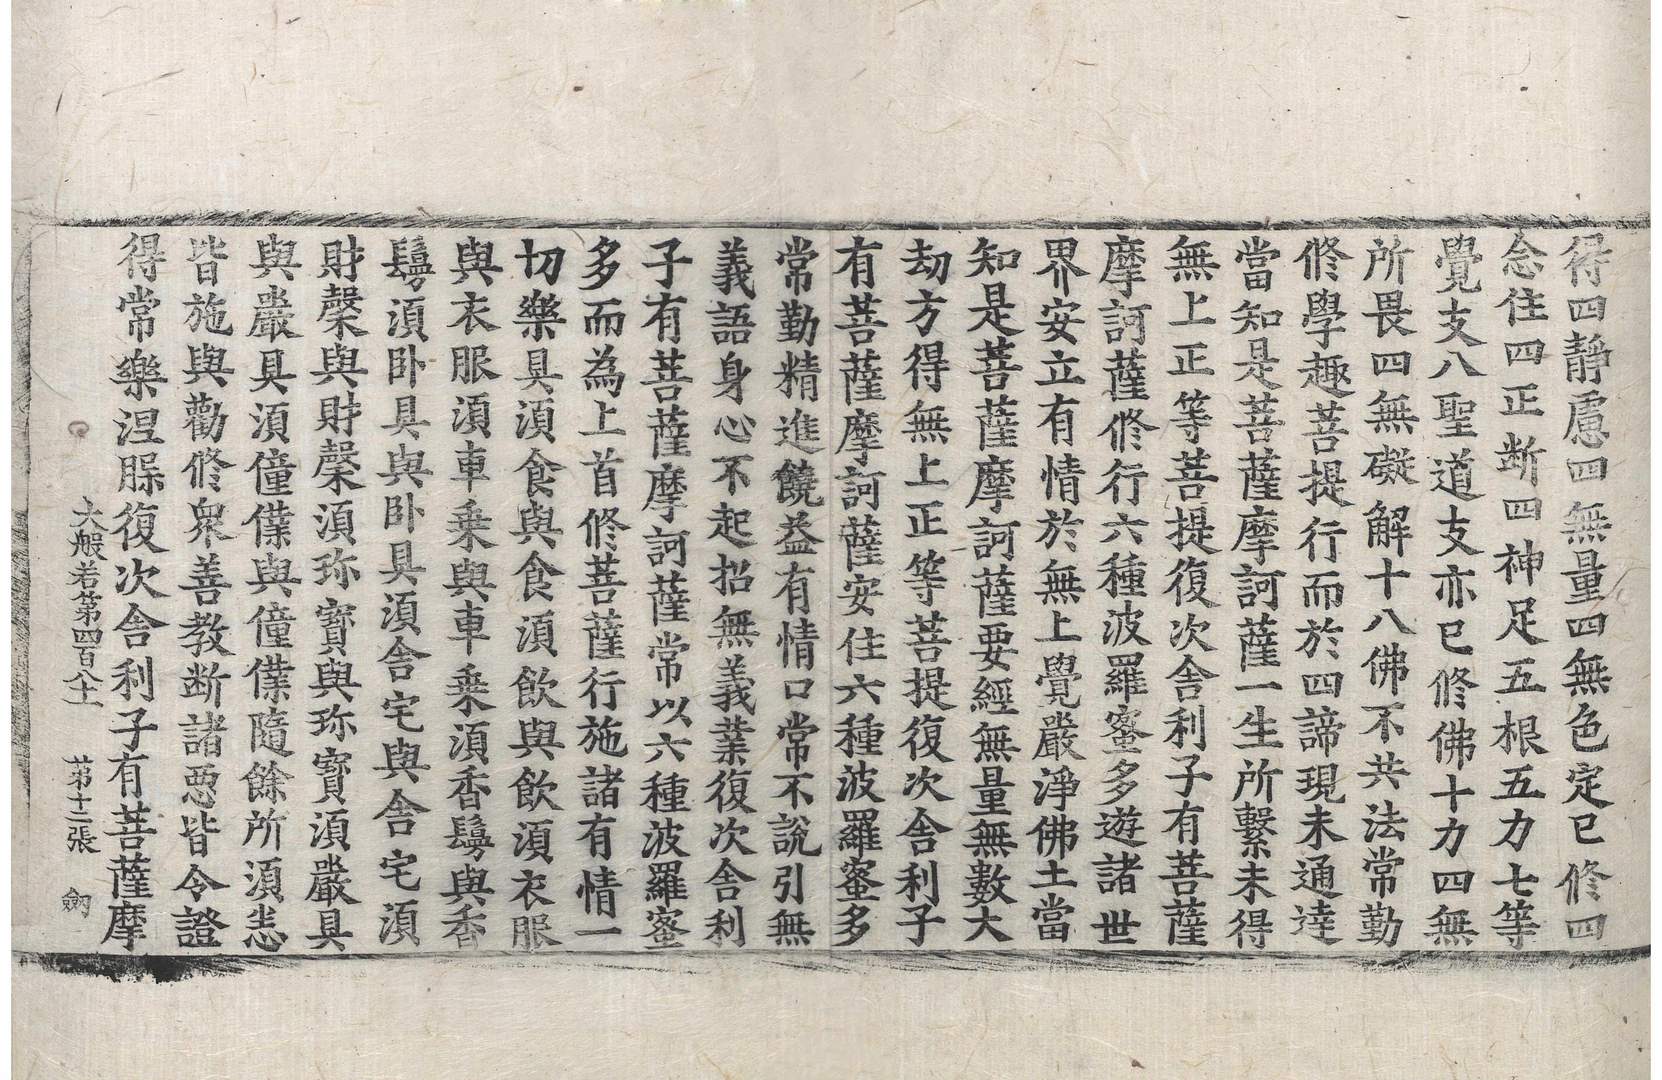 得四靜慮四無量四無色定已修四
念住四正断四神足五根五力七等
覺支八聖道支亦已修佛十力四無
所畏四無礙解十八佛不共法常勤
修學趣菩提行而於四諦現未通達
當知是菩薩摩訶薩一生所繫未得
無上正等菩提復次舎利子有菩薩
摩訶薩修行六種波羅蜜多遊諸世
界安立有情於無上覺嚴淨佛土當
知是菩薩摩訶薩要經無量無數大
劫方得無上正等菩提復次舎利子
有菩薩摩訶薩安住六種波羅蜜多
常勤精進饒益有情口常不說引無
義語身心不起招無義業復次舎利
子有菩薩摩訶薩常以六種波羅蜜
多而為上首修菩薩行施諸有情一
切樂具湏食與食湏飲與飲湏衣服
與衣服湏車乗與車乗湏香鬘與香
鬘湏卧具與卧具湏舎宅與舎宅湏
財糓與財糓湏珎寳與珎寳湏嚴具
與嚴具湏僮僕與僮僕隨餘所湏恙
皆施與勸修衆善教断諸惡皆令證
得常樂涅槃復次舎利子有菩薩摩
大般若第四百八十 苐十二張 劒